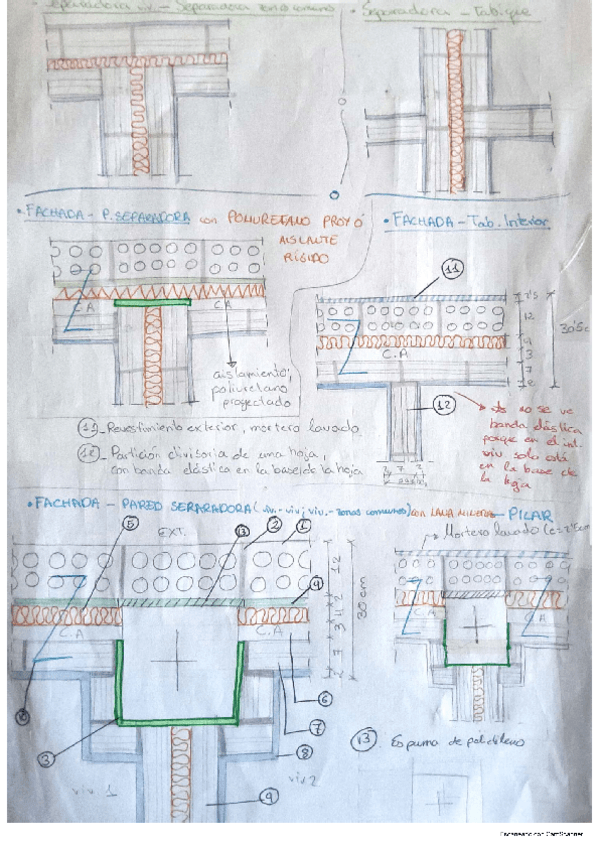 Separadora viv. - Separadora zonas comunes
• Separadora - Tabique
• FACHADA - P. SEPARADORA con POLIURETANO PROYO
AISLANTE
RÍGIDO
• FACHADA - Tab. Interior
C.A
C.A
aislamiento;
poliuretano
proyectado
11
1'5
12
4
3
7
2
30'5c
C.A
12
→ no se ve
banda elástica
porque en el int.
viv solo está
en la base de
la hoja
11_ Revestimiento exterior, mortero lavado
12_ Partición divisoria de una hoja,
con banda elástica en la base de la hoja
• FACHADA - PARED SEPARADORA (viv.-viv; viv.-zonas comunes) con LANA MINERAL - PILAR
5
EXT.
13
2
1
Mortero lavado (e: 1'5cm
12
30 cm
9
C.A
C.A
C.A
C.A
6
7
3
8
viv 1
viv 2
9
13 Espuma de polietileno
Escaneado con CamScanner